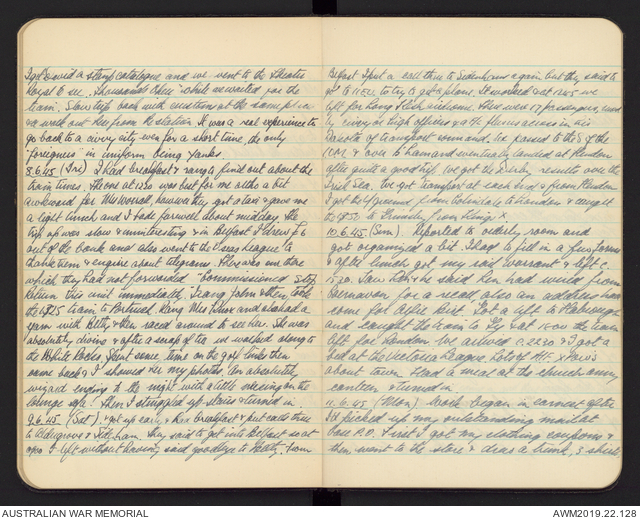 I got David a stamp catalogue and we went to the theatre
Royal to see "Thousands Cheer" while we waited for the
tram. Slow trip back with
walk out there from the station. It was a real experience to
go back to a civvy city even for a short time, the only
"foreigners" in uniform being Yanks
8.6.45 (Fri) I had breakfast & rang & find out about the
train times. The one at 1230 was best for me altho a bit
awkward for Mrs Worsall, however they got a taxi & gave me
a light lunch and I bade farewell about midday. The
trip up was slow & uninteresting & in Belfast I drew £6
out of the bank and also went to the Overseas League to
thank them & enquire about telegrams. There was one there
which they had not forwarded "Commissioned Stop
Return this unit immediately". I rang John & then took
the 1725 tram to Portrush. Rang Mrs Knox and also had a
yarn with Betty & then raced around to see her. She was
absolutely divine & after a scrap of tea we walked along to
the White Rocks. Spent some time on the golf links then
came back & I showed her my photos. An absolutely
wizard ending to the night with a little necking on the
lounge sofa! Then I struggled up stairs & turned in.
9.6.45 (Sat). I got up early & had breakfast & put calls thru
to Aldergrove & Sydenham. They said to get into Belfast so at
0900 I left without having said goodbye to Betty. From
Belfast I put a call thru to Sydenham again but they said to
go to 1120 to try to get a plane. It worked & at 1245 we
left for Long Kesh airdrome. There were 17 passengers, mostly
civvy or high officers & a Lt. flew us across in his
Dakota of transport command. We passed to the S of the
IOM & over to Land and eventually landed at Hendon
after quite a good trip. We got the Derby results over the
Irish Sea. We got transport at each end & from Hendon
I got the U/ground from Colindale to London & caught
the 1750 to Grimsby from Kings X.
10.6.45 (Sun). Reported to orderly room and
got organised a bit. I had to fill in a few forms
& after lunch got my rail warrant & left c.
1530. Saw Pop & he said Ken had wired from
Carnarvon for a recall also an address had
come for Alfie Best. Got a lift to Habrough
and caught the train to Gy & at 1800 the train
left for London. We arrived c. 2230 & I got a
bed at the Victoria League. Lots of AIF & Paw's
about town. Had a meal at the church army
canteen & turned in.
11.6.45 (Mon). Work began in earnest after
I'd picked up my outstanding mail at
base P.O. First I got my clothing coupons &
then went to the store & drew a trunk, 3 shirts,
AUSTRALIAN WAR MEMORIAL
AWM2019.22.128